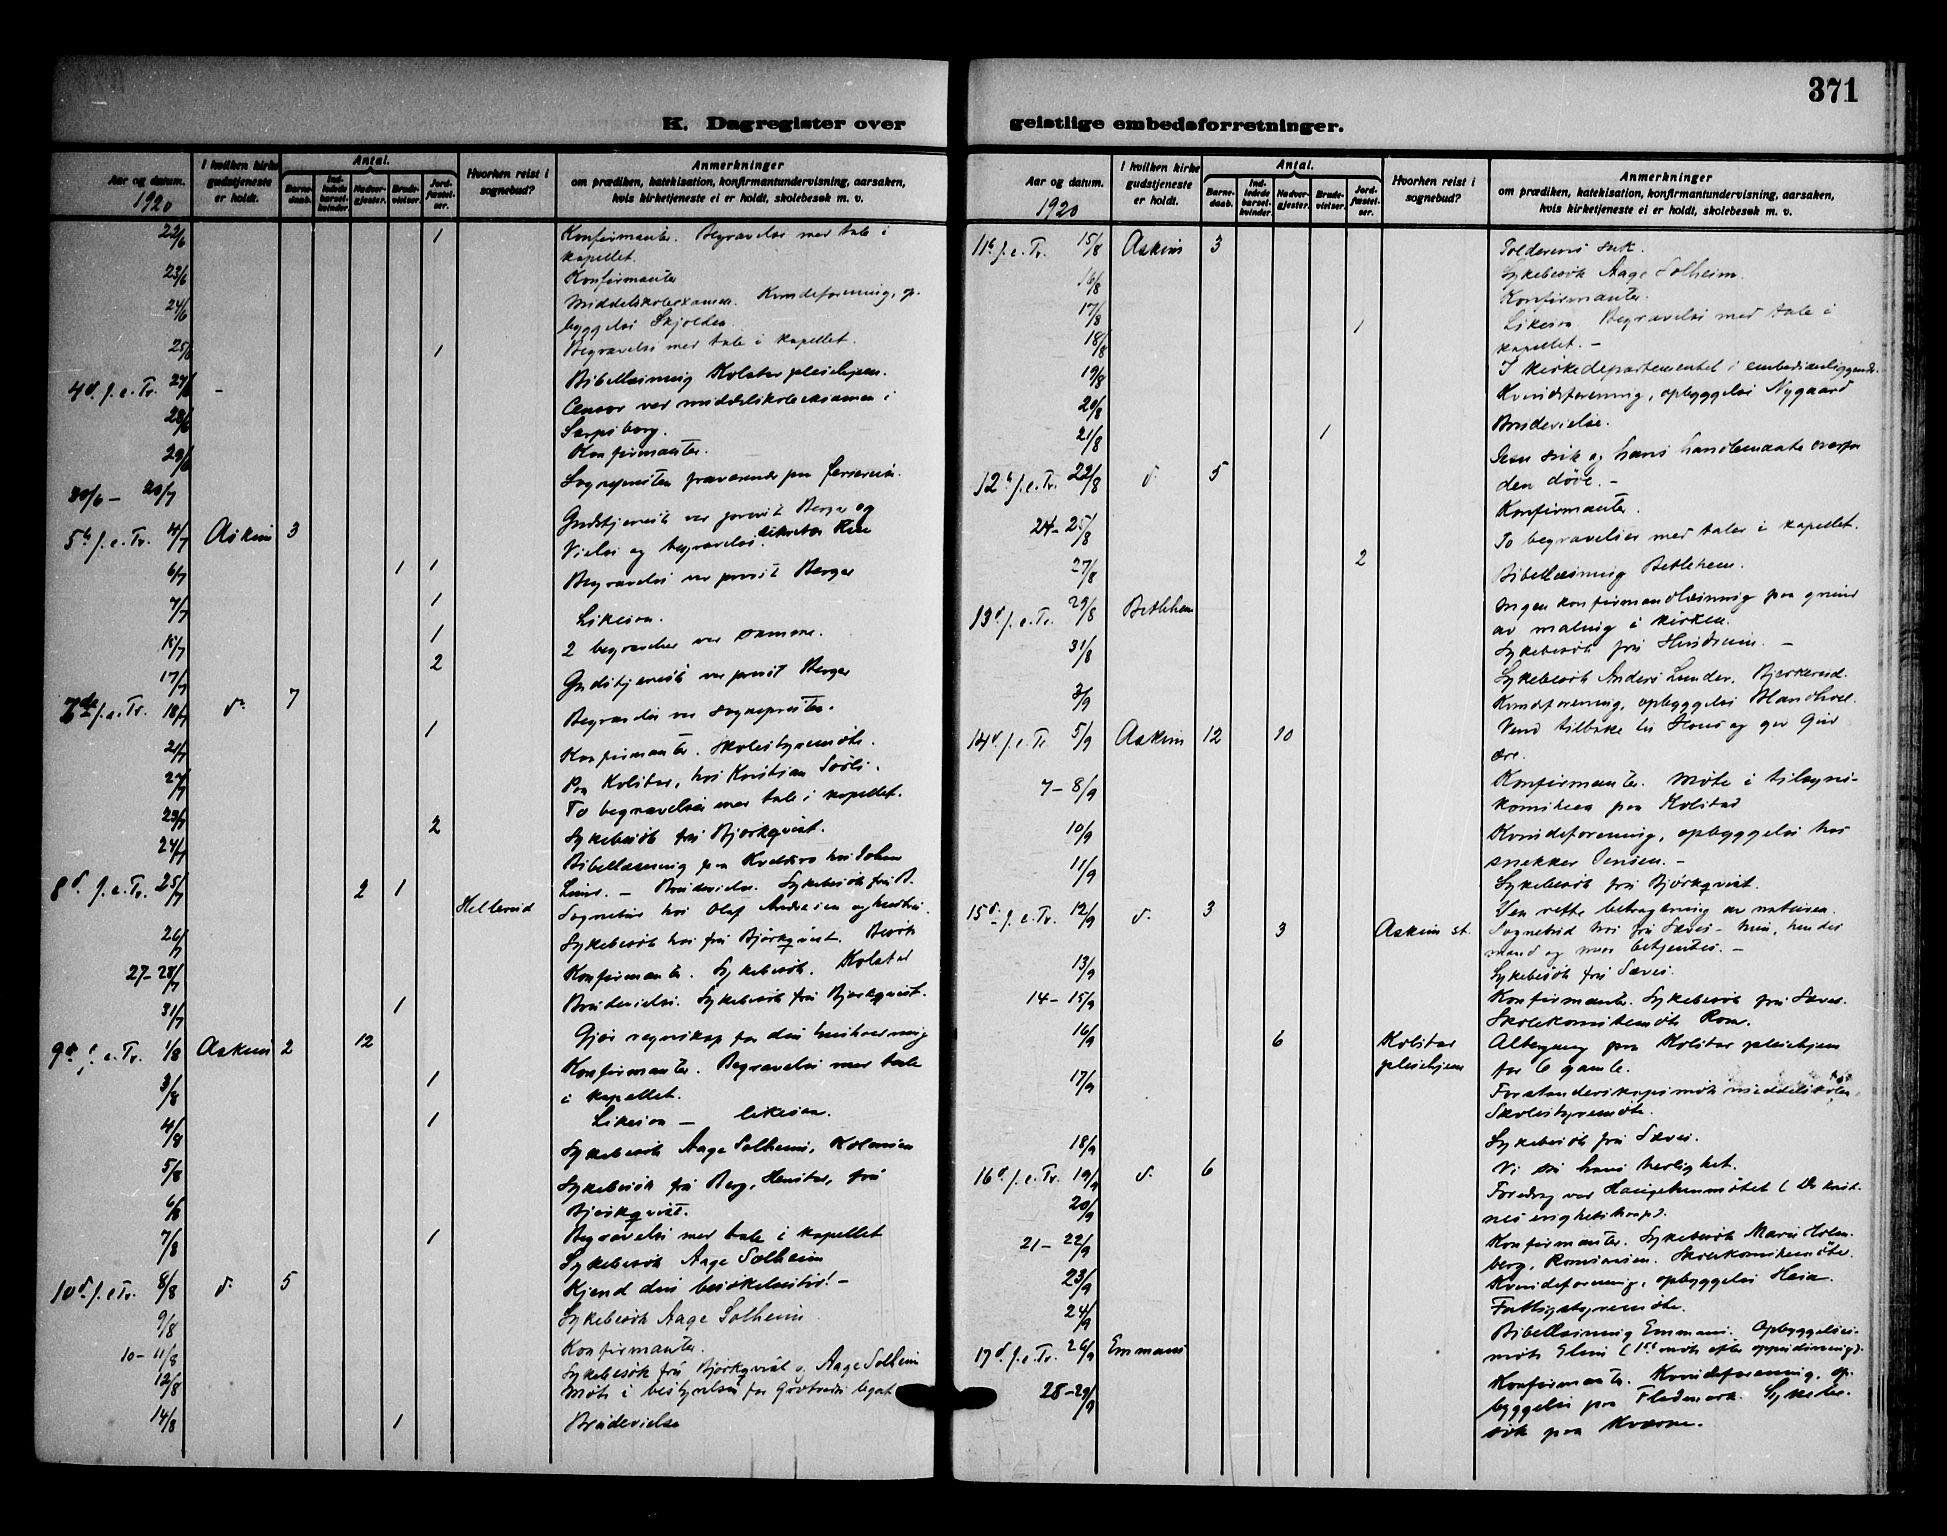 371
K. Dagregister over geistlige embedsforretninger.
Aar og datum.
1920
I hvilken kirke gudstjeneste er holdt.
Antal.
Barne-daab.
Ind-ledede barsel-kvinder.
Nadver-gjester.
Brude-vielser.
Jord-fæstel-ser.
Hvorhen reist i sognebud?
Anmerkninger
om prædiken, katekisation, konfirmantundervisning, aarsaken,
hvis kirketjeneste ei er holdt, skolebesøk m. v.
22/6 1 Konfirmanter. Begravelse med tale i
kapellet.
23/6 Konfirmanter
24/6 Middelskoleexamen. Kvindeforening, op-
byggelse Skjolden
25/6 1 Begravelse med tale i kapellet.
4d. f.e.Tr. 27/6 - Bibellæsning Kolstad pleiehjem.
28/6 Censor ved middelskoleeksamen i
Sarpsborg.
29/6 Konfirmanter.
30/6 – 20/7 Sognepresten fraværende paa ferie
5te f.e.Tr. 4/7 Askim 3 Gudstjeneste ved provst Berger og
6/7 1 1 Vielse og begravelse
7/7 1 Begravelse ved provst Berger
15/7 1 Likeisaa.
17/7 2 2 begravelser ved samme.
7de f.e.Tr. 18/7 do 7 Gudstjeneste ved provst Berger
21/7 1 Begravelse ved sognepresten.
Konfirmanter. Skolestyremøte.
Paa Kolstad, hos Kristian
23/7 2 To begravelser med tale i kapellet.
24/7 Sykebesøk fru Bjørkqvist.
8d. f.e.Tr. 25/7 2 1 Hellerud Bibellæsning paa hos Johan
Lund. – Brudevielse. Sykebesøk fru B.
Sognebud hos Olaf Andersen og hustru.
26/7 Sykebesøk hos fru Bjørkqvist. Besøk
27–28/7 Konfirmanter. Sykebesøk. Kolstad
31/7 1 Brudevielse. Sykebesøk fru Bjørkqvist.
9d f.e.Tr. 1/8 Askim 2 12 Gjør regnskap for din husholdning
3/8 1 Konfirmanter. Begravelse med tale
i kapellet.
4/8 1 Likeisaa – likeisaa.
5/8 Sykebesøk Aage Solheim, Kolonien
6/8 Sykebesøk fru Berg, Henstad, fru
Bjørkqvist.
7/8 1 Begravelse med tale i kapellet
Sykebesøk Aage Solheim
10d. f.e.Tr. 8/8 do 5 Kjend din besøkelsestid! –
9/8 Sykebesøk Aage Solheim
10–11/8 Konfirmanter.
12/8 Sykebesøk fru Bjørkqvist og Aage Solheim
Møte i bestyrelsen for legat
14/8 1 Brudevielse
Aar og datum.
1920
I hvilken kirke gudstjeneste er holdt.
Antal.
Barne-daab.
Ind-ledede barsel-kvinder.
Nadver-gjester.
Brude-vielser.
Jord-fæstel-ser.
Hvorhen reist i sognebud?
Anmerkninger
om prædiken, katekisation, konfirmantundervisning, aarsaken,
hvis kirketjeneste ei er holdt, skolebesøk m. v.
11te f.e.Tr. 15/8 Askim 3 Tolderens suk.
16/8 Sykebesøk Aage Solheim.
17/8 Konfirmanter.
18/8 1 Likeisaa Begravelse med tale i
kapellet. –
19/8 I kirkedepartementet i embedsanliggende.
20/8 Kvindeforening, opbyggelse Nygaard
21/8 1 Brudevielse.
12te f.e.Tr. 22/8 do 5 Jesu suk og hans handlemaate overfor
den døve. –
24–25/8 Konfirmanter.
27/8 2 To begravelser med taler i kapellet.
13d f.e.Tr. 29/8 Betlehem Bibellæsning Betlehem.
31/8 Ingen konfirmandlæsning paa grund
av maling i kirken.
Sykebesøk fru –
3/9 Sykebesøk Anders Lunder, Bjerkerud.
Kvindeforening, opbyggelse
14d. f.e.Tr 5/9 Askim 12 10 Vend tilbake til Jesus og gi Gud
ære.
7–8/9 Konfirmanter. Møte i tilsyns-
komiteen paa Kolstad
10/9 Kvindeforening, opbyggelse hos
snekker Jensen. –
11/9 Sykebesøk fru Bjørkqvist.
15d. f.e.Tr. 12/9 do 3 Den rette betragtning av naturen.
3 Askim st. Sognebud hos fru Sæves – hun, hendes
mand og mor betjentes. –
13/9 Sykebesøk fru Sæves.
14–15/9 Konfirmanter. Sykebesøk fru Sæves.
Skolekomitemøte Rom.
16/9 6 Kolstad pleiehjem Altergang paa Kolstad pleiehjem
for 6 gamle.
17/9 Forstanderskapsmøte middelskolen.
Skolestyremøte.
18/9 Sykebesøk fru Sæves.
16d. f.e.Tr. 19/9 do 6 Vi så hans herlighet.
20/9 Foredrag ved Haugetunmøtet (De krist-
nes enighetskamp).
21–22/9 Konfirmanter. Sykebesøk Marie Holm-
berg, Romsaasen. Skolekomitemøte.
23/9 Kvindeforening, opbyggelse Heia.
24/9 Fattigstyremøte.
17d. f.e.Tr. 26/9 Emmaus Bibellæsning Emmaus. Opbyggelses-
møte Elim (1ste møte efter oppudsning).
28–29/9 Konfirmanter. Kvindeforening, op-
byggelse paa Fladmark. Sykebe-
søk paa Kværne.